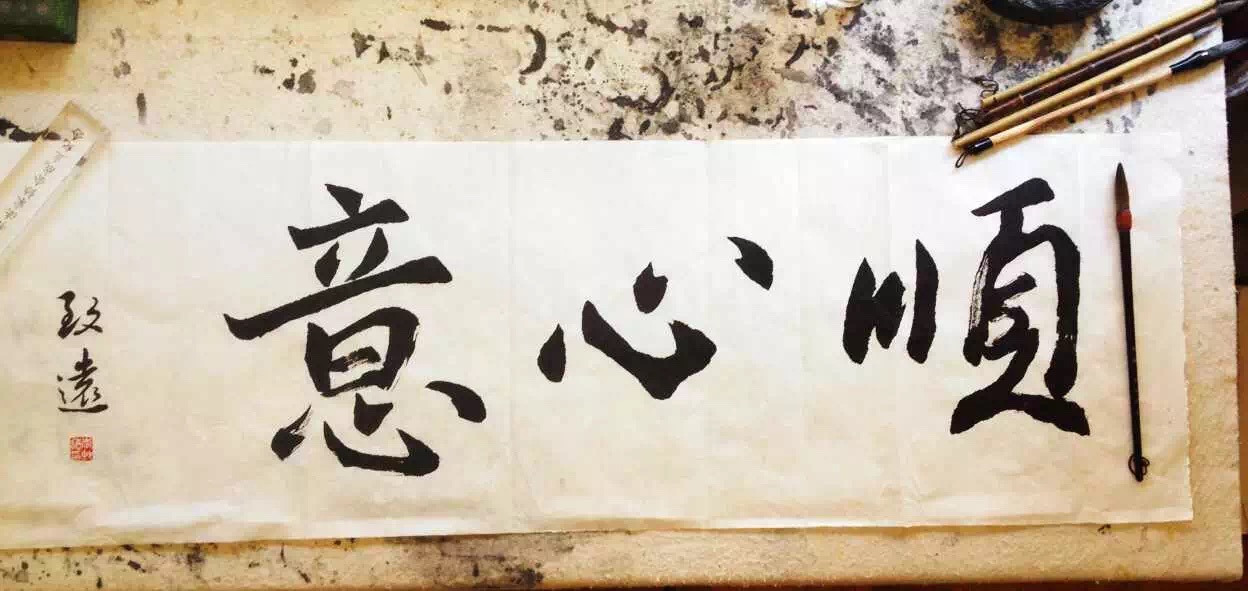 順心意
致遠